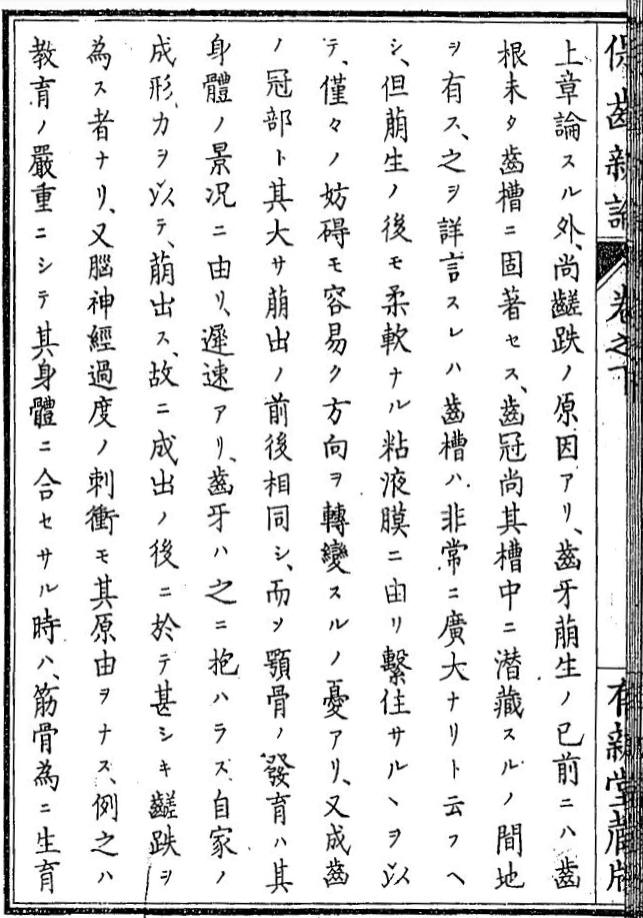 保齒新論 卷之下 有新堂藏版
上章論スル外、尚齹跌ノ原因アリ、齒牙萠生ノ已前ニハ齒
根未タ齒槽ニ固著セス、齒冠尚其槽中ニ潜藏スルノ間地
ヲ有ス、之ヲ詳言スレハ齒槽ハ非常ニ廣大ナリト云フヘ
シ、但萠生ノ後モ柔軟ナル粘液膜ニ由リ繫住サルヽヲ以
テ、僅々ノ妨碍モ容易ク方向ヲ轉變スルノ憂アリ、又成齒
ノ冠部ト其大サ萠出ノ前後相同シ、而ソ顎骨ノ發育ハ其
身體ノ景况ニ由リ、遲速アリ、齒牙ハ之ニ抱ハラス自家ノ
成形力ヲ以テ、萠出ス、故ニ成出ノ後ニ於テ甚シキ齹跌ヲ
為ス者ナリ、又腦神經過度ノ刺衝モ其原由ヲナス、例之ハ
教育ノ嚴重ニシテ其身體ニ合セサル時ハ、筋骨為ニ生育